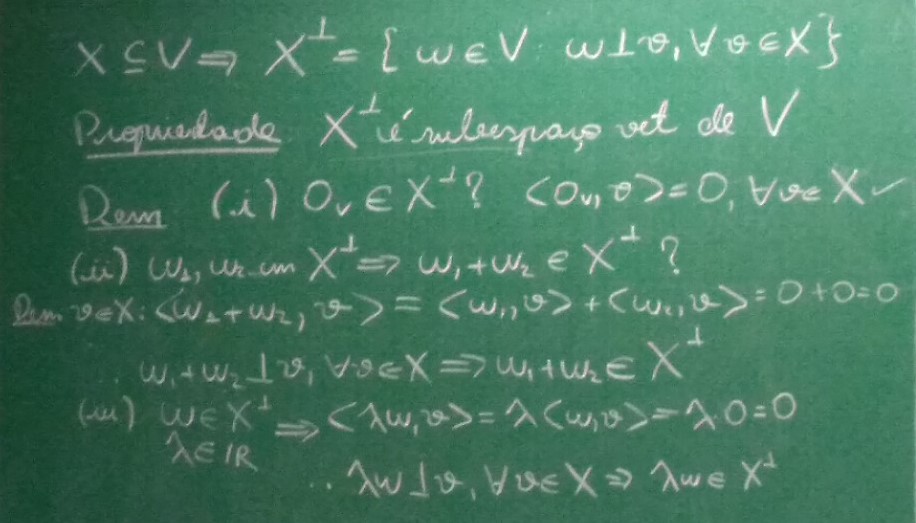 X ⊆ V ⇒ X^⊥ = { w ∈ V : w ⊥ v, ∀ v ∈ X }
Propriedade X^⊥ é subespaço vet de V
Dem (i) 0_V ∈ X^⊥ ? <0_V, v> = 0, ∀ v ∈ X ✓
(ii) w_1, w_2 em X^⊥ ⇒ w_1 + w_2 ∈ X^⊥ ?
Dem v ∈ X : <w_1 + w_2, v> = <w_1, v> + <w_2, v> = 0 + 0 = 0
∴ w_1 + w_2 ⊥ v, ∀ v ∈ X ⇒ w_1 + w_2 ∈ X^⊥
(iii) w ∈ X^⊥ ⇒ <λw, v> = λ<w, v> = λ·0 = 0
λ ∈ IR
∴ λw ⊥ v, ∀ v ∈ X ⇒ λw ∈ X^⊥